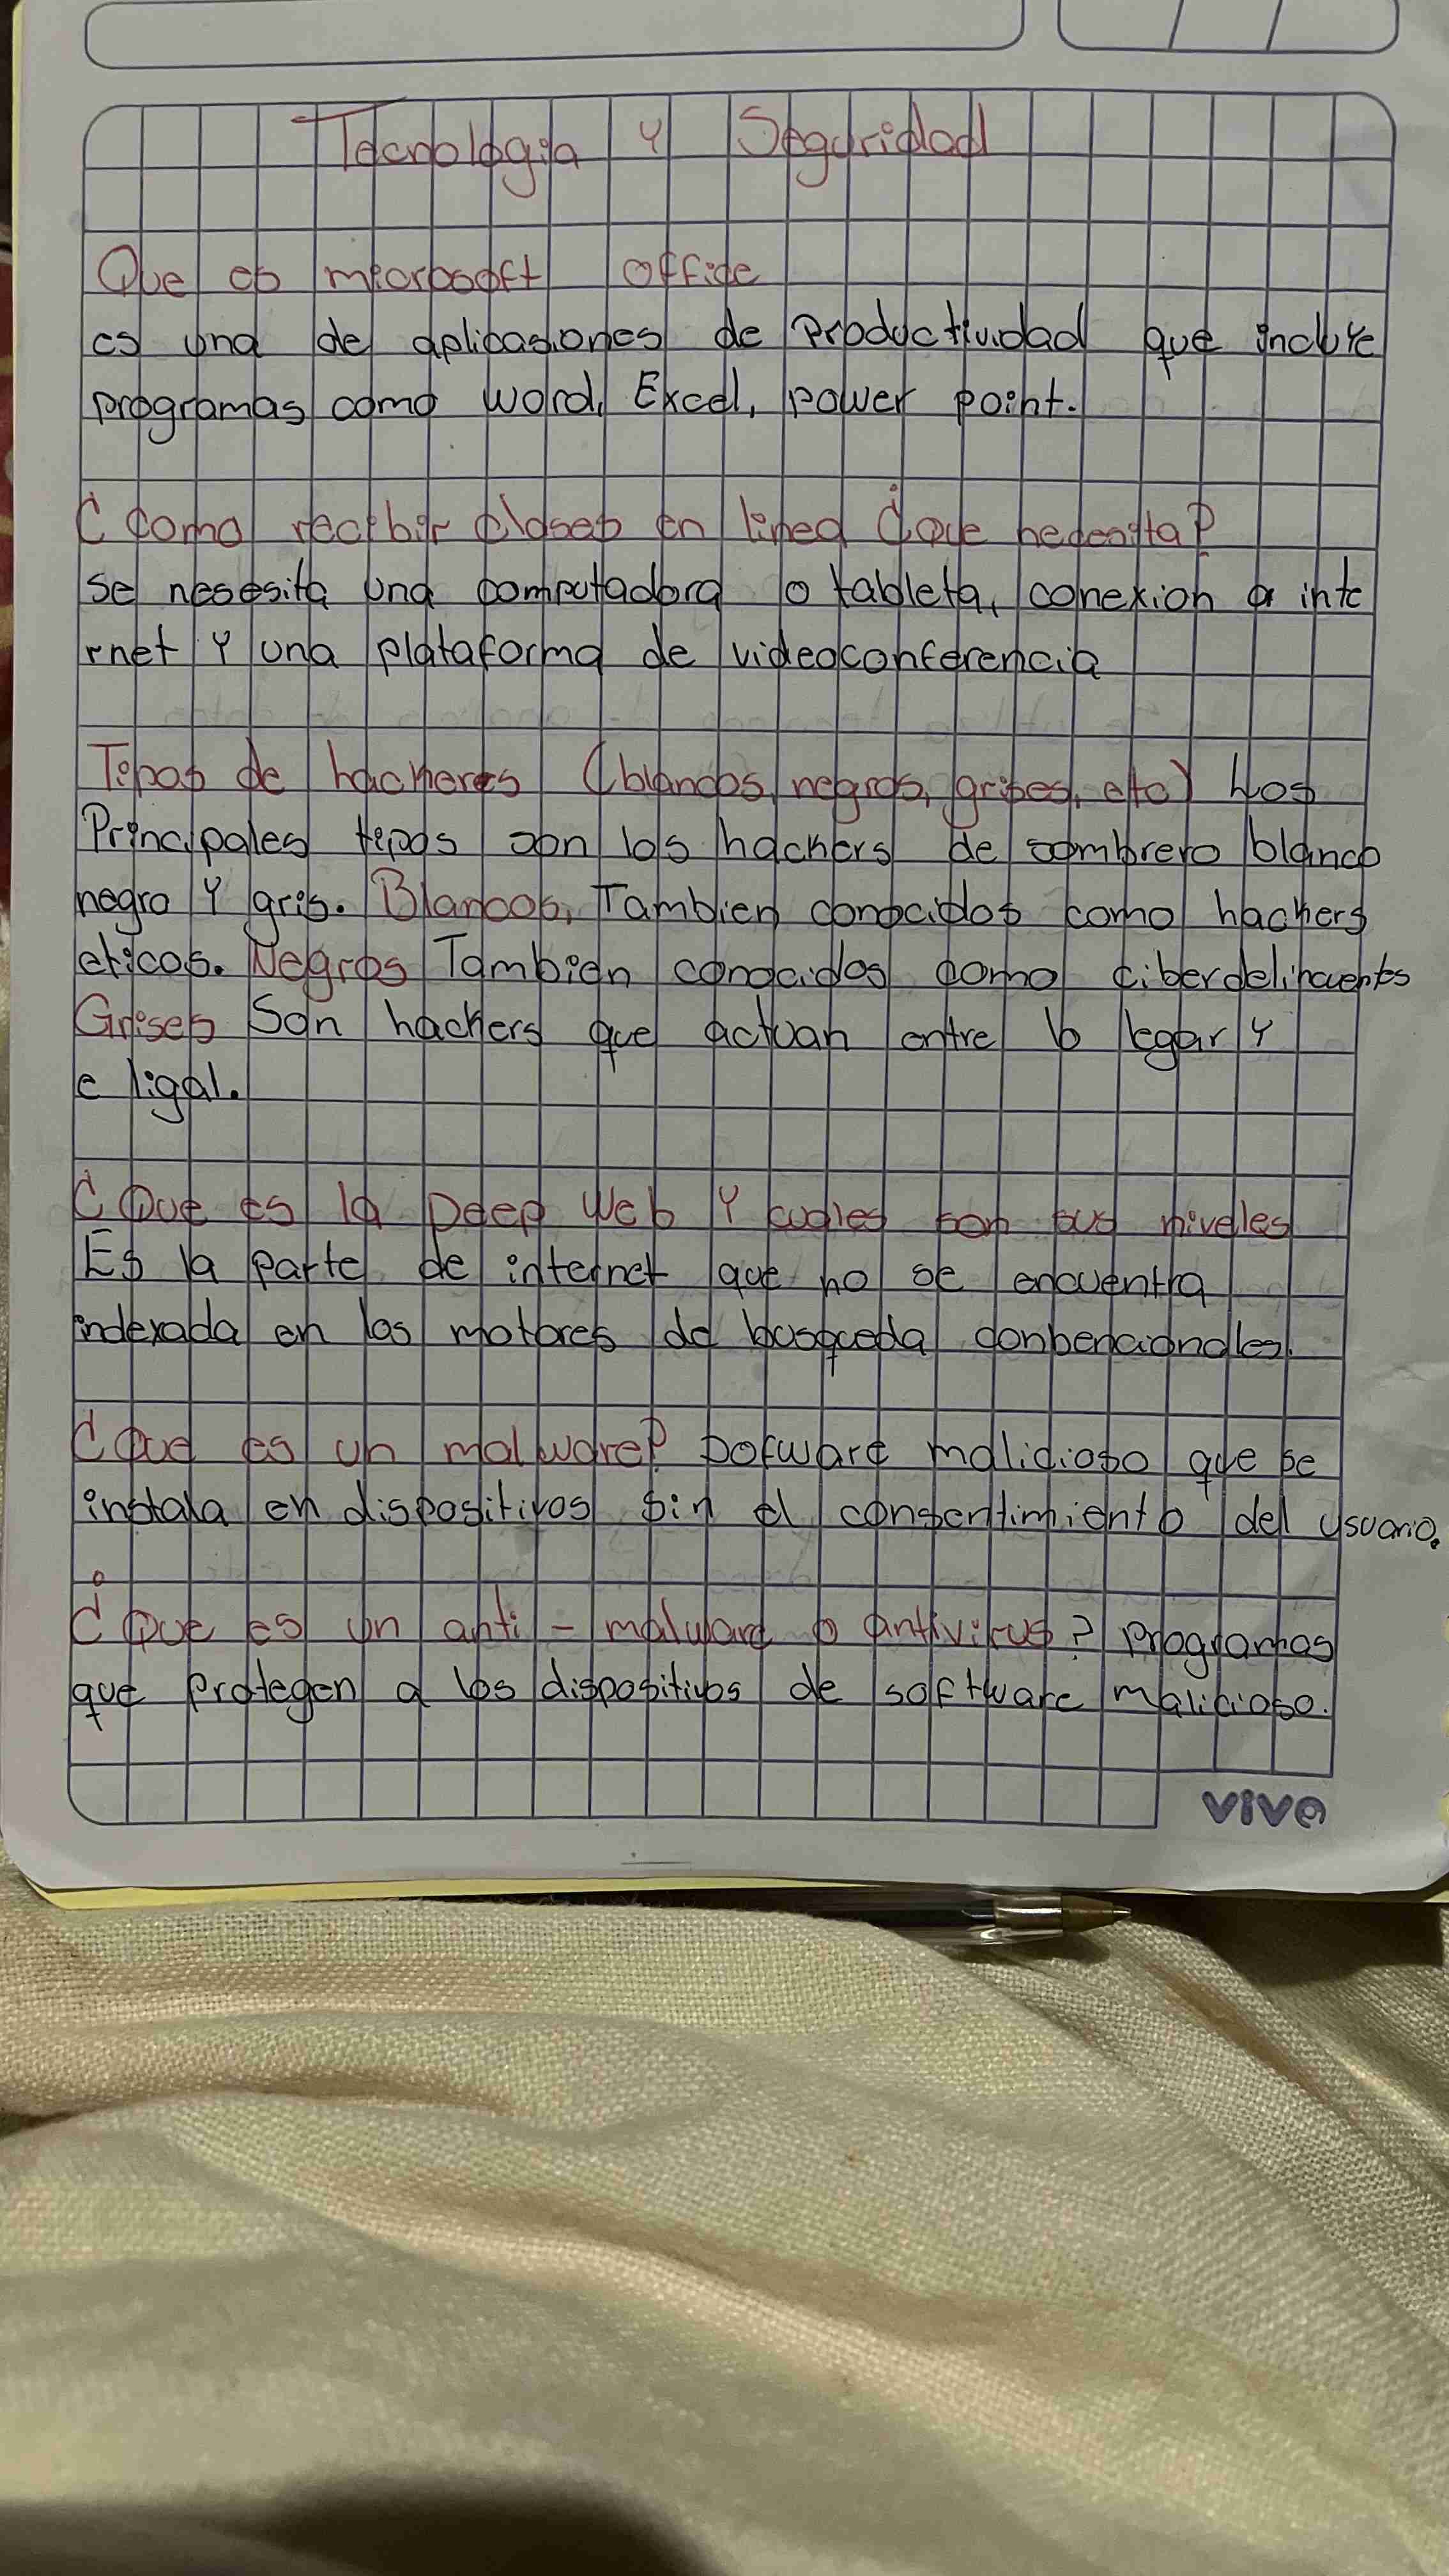 Tecnologia y Seguridad
Que es microsoft office
es una de aplicasiones de Productividad que incluye
programas como word, Excel, power point.
¿ como recibir clases en linea ¿ que necesita?
se nesesita una computadora o tableta, conexion a inte
rnet y una plataforma de videoconferencia
Tipos de hackers (blancos, negros, grises, etc) Los
Principales tipos son los hackers de sombrero blanco
negro y gris. Blancos, Tambien conocidos como hackers
eticos. Negros Tambien conocidos como ciberdelincuents
Grises Son hackers que actuan entre lo legar y
e ligal.
¿ Que es la Deep Web y cuales son sus niveles
Es la parte de internet que no se encuentra
indexada en los motores de busqueda conbencionales.
¿ Que es un malware? sofware malicioso que se
instala en dispositivos sin el consentimiento del usuario.
¿ Que es un anti - malware o antivirus? programas
que protegen a los dispositivos de software malicioso.
vive